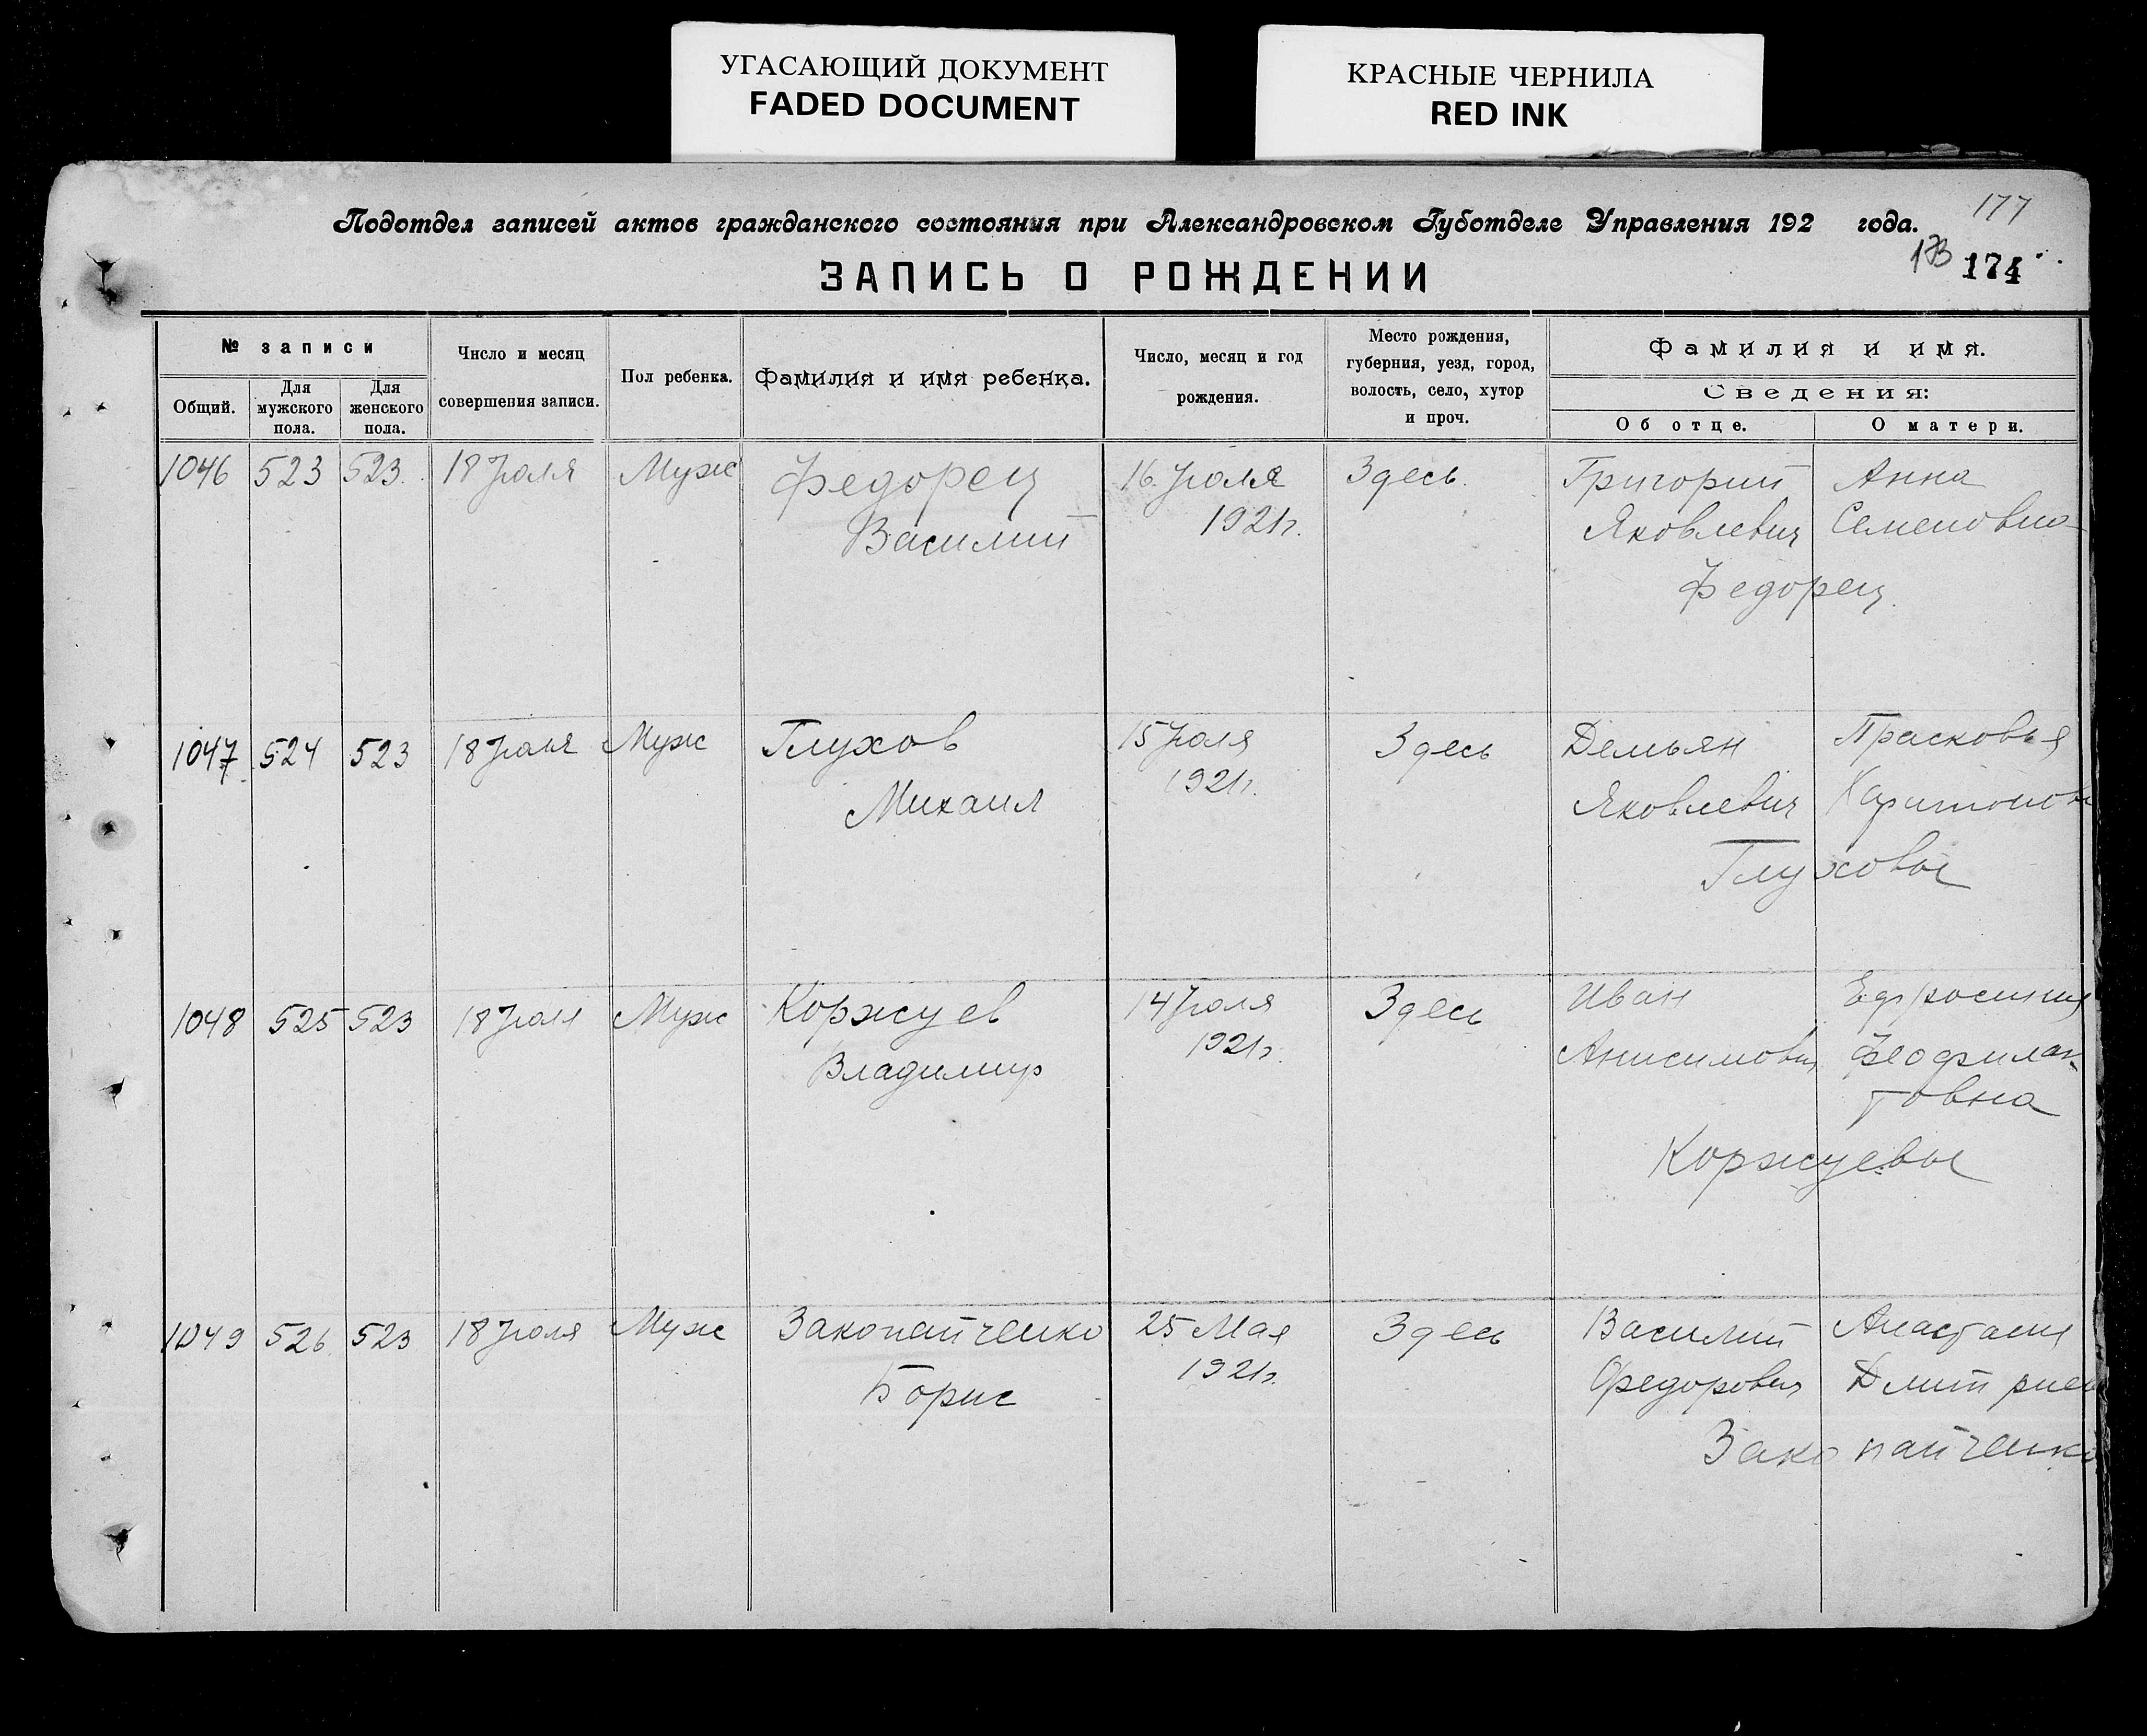 УГАСАЮЩИЙ ДОКУМЕНТ
FADED DOCUMENT
КРАСНЫЕ ЧЕРНИЛА
RED INK
177
Подотдел записей актов гражданского состояния при Александровском Губотделе Управления 192 года.
173 174
ЗАПИСЬ О РОЖДЕНИИ
№ записи
Общий.
Для мужского пола.
Для женского пола.
Число и месяц совершения записи.
Пол ребенка.
Фамилия и имя ребенка.
Число, месяц и год рождения.
Место рождения, губерния, уезд, город, волость, село, хутор и проч.
Фамилия и имя.
Сведения:
Об отце.
О матери.
1046 523 523. 18 Июля Муж Федорец 16 Июля Здесь. Григорий Анна
Василий 1921г. Яковлевич Семеновна
Федорец.
1047 524 523 18 Июля Муж Глухов 15 Июля Здесь Демьян Прасковья
Михаил 1921г. Яковлевич Харитонов
Глуховы
1048 525 523 18 Июля Муж Коржуев 14 Июля Здесь Иван Ефросиния
Владимир 1921г. Анисимович Феофилак-
товна
Коржуевы
1049 526 523 18 Июля Муж Закопайченко 25 Мая Здесь Василий Анастасия
Борис 1921г. Федорович Дмитриев
Закопайченко